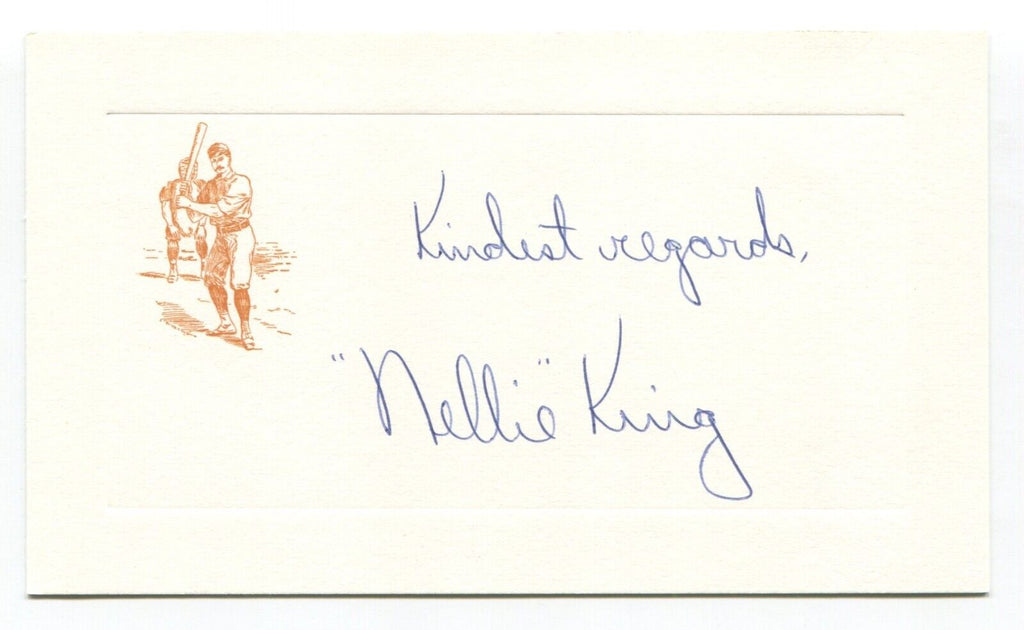 Kindest regards,
"Nellie" King